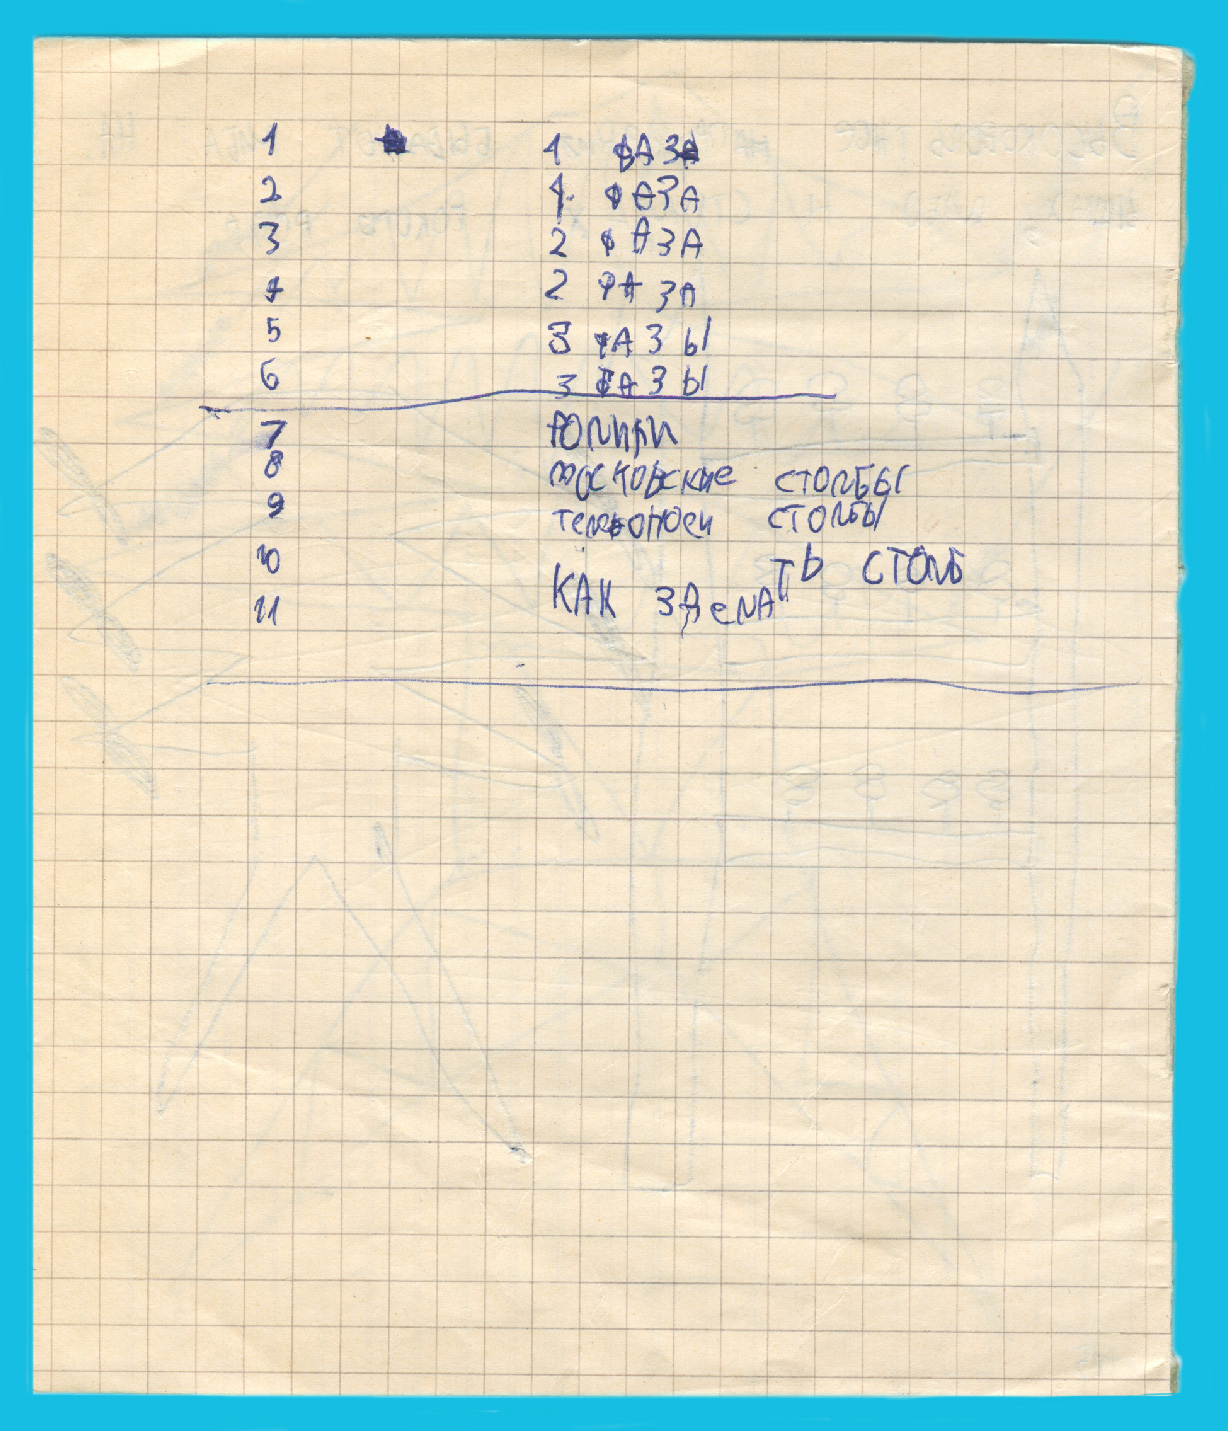 1 1 ФАЗА
2 1. ФАЗА
3 2 ФАЗА
4 2 ФАЗА
5 3 ФАЗЫ
6 3 ФАЗЫ
7
8 московские столбы
9 столбы
10
11 КАК ЗДеЛАТЬ СТОЛБ